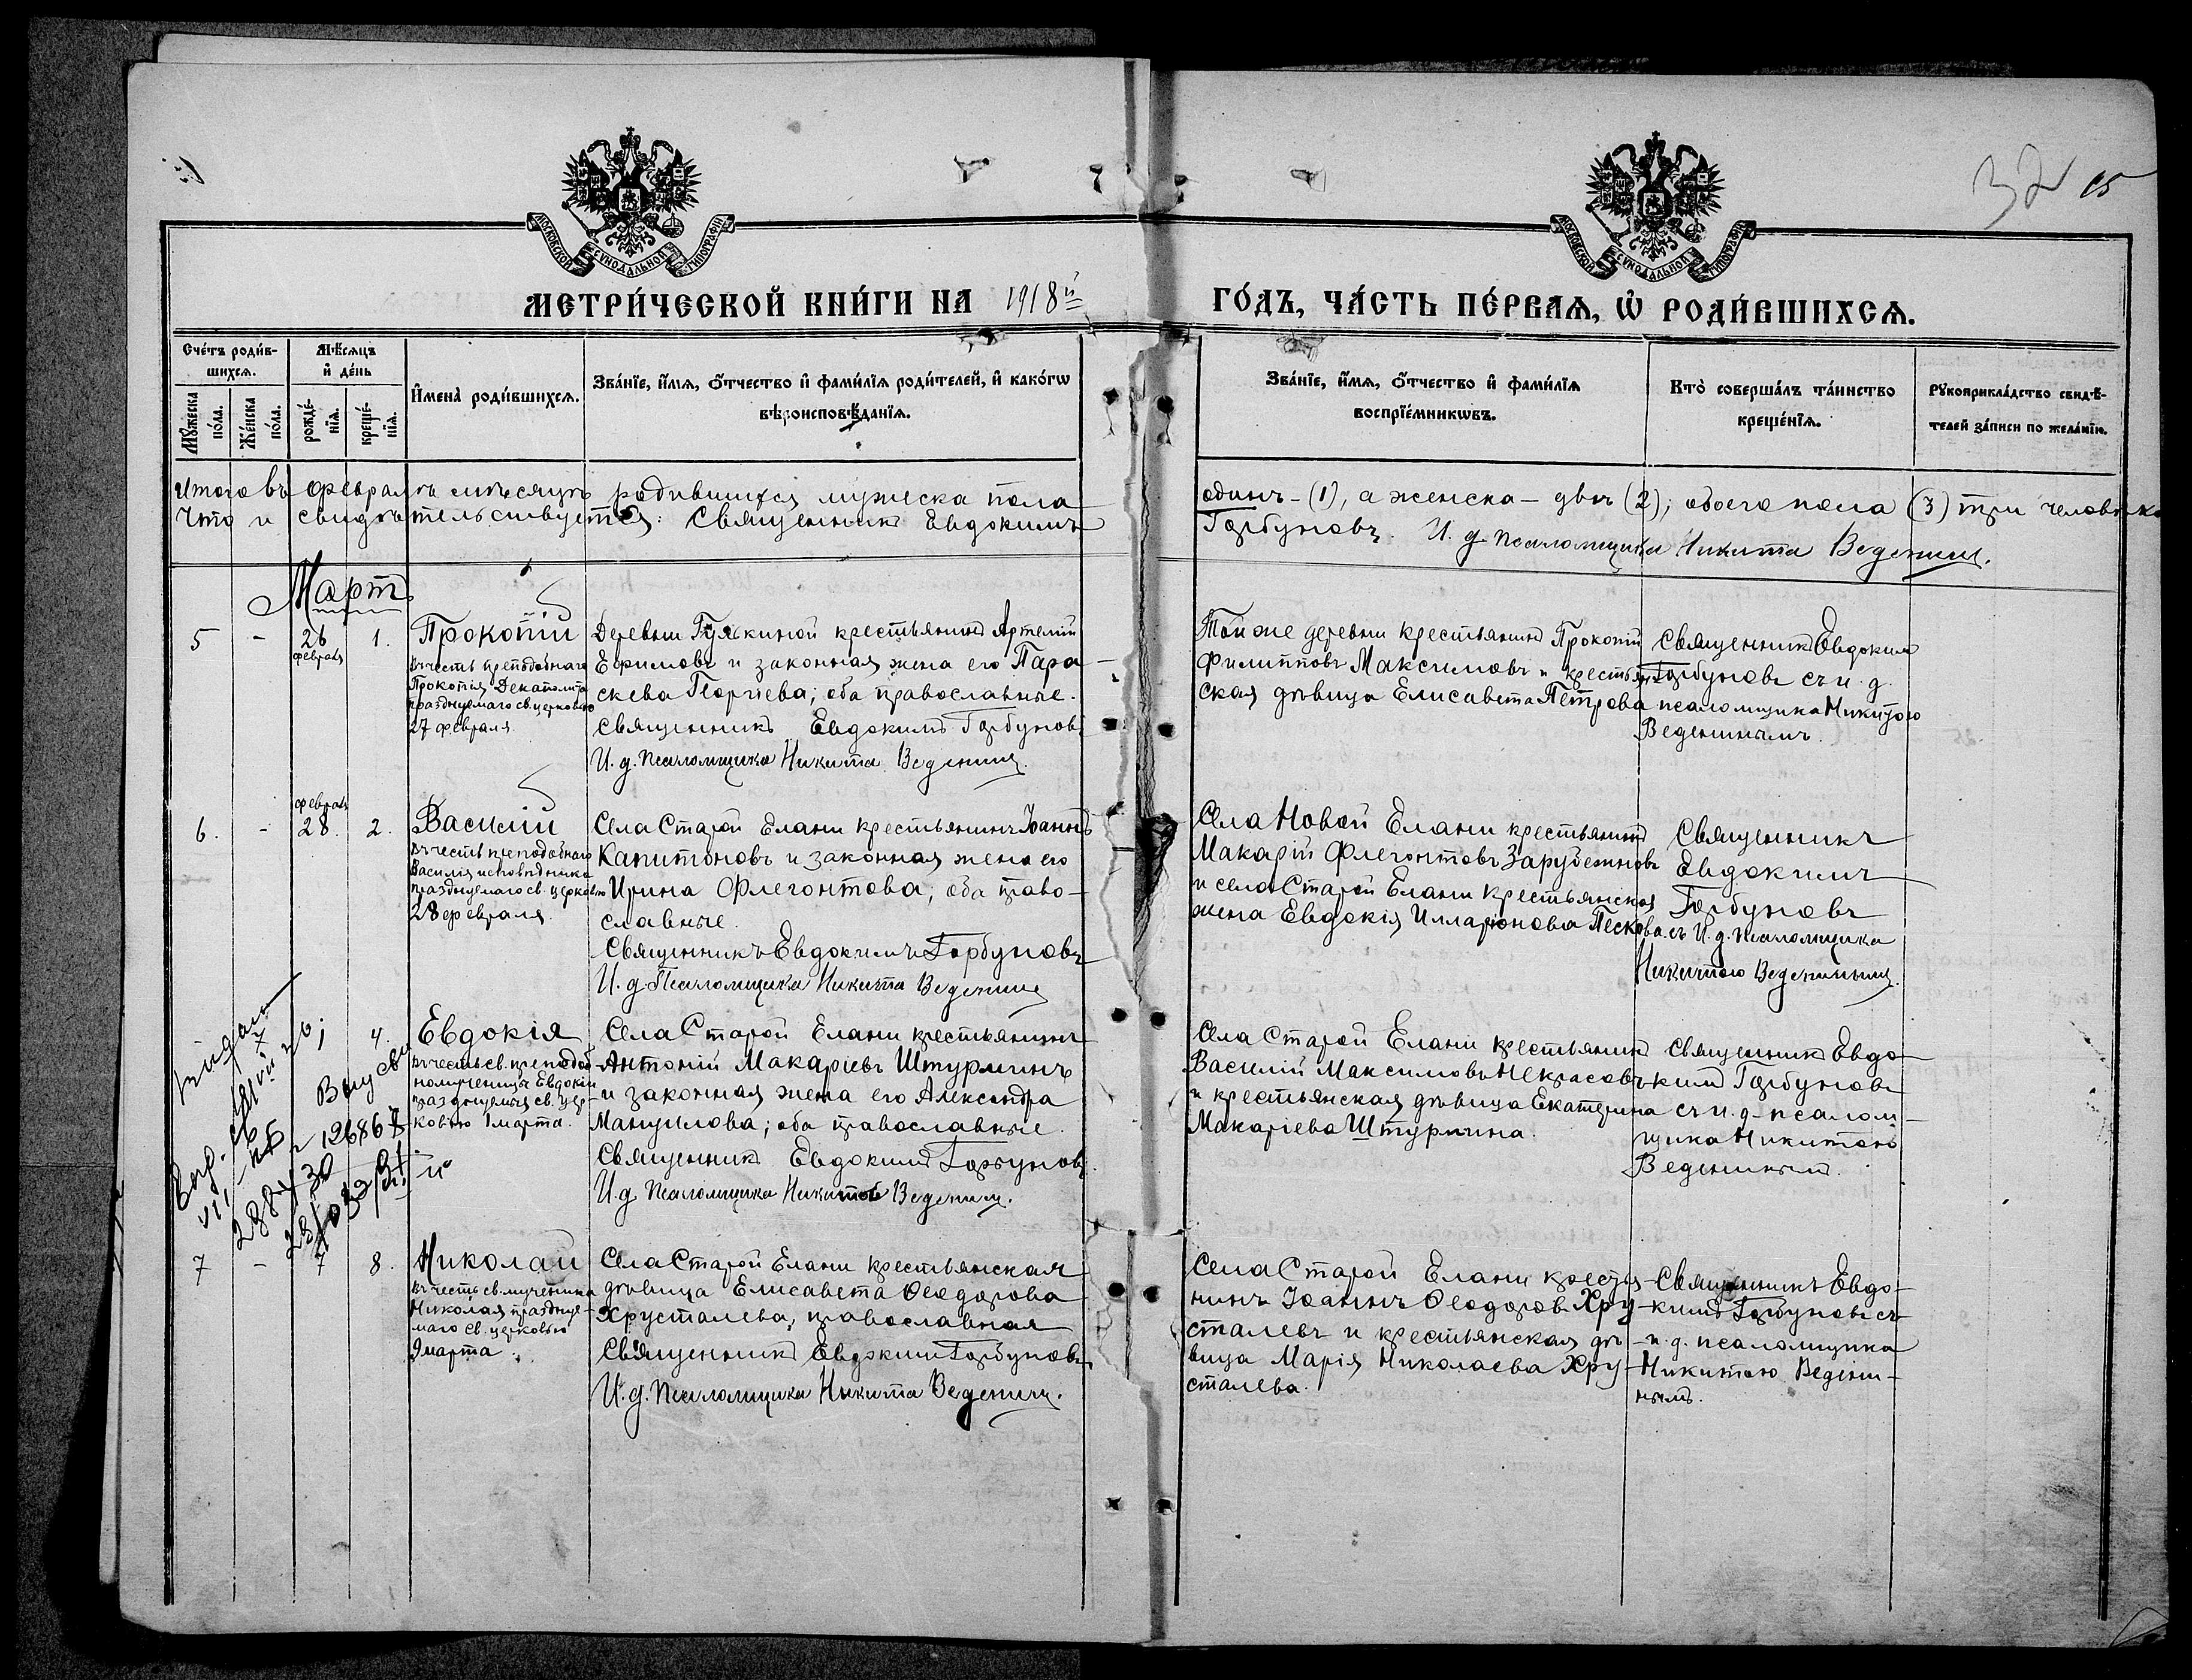 МОСКОВСКОЙ СУНОДАЛЬНОЙ ТИПОГРАФІИ
МОСКОВСКОЙ СУНОДАЛЬНОЙ ТИПОГРАФІИ
32 15
МЕТРИ́ЧЕСКОЙ КНИ́ГИ НА 1918й
ГО́ДЪ, ЧА́СТЬ ПЕ́РВАѦ, Ѡ҆ РОДИ́ВШИХСѦ.
Сче́тъ роди́в-
шихсѧ.
Мѣ́сѧцъ
и҆ де́нь
Мꙋ́жеска
по́ла.
Же́нска
по́ла.
рожде́-
нїѧ.
креще́-
нїѧ.
И҆мена̀ роди́вшихсѧ.
Зва́нїе, и҆́мѧ, ѻ҆́тчество и҆ фами́лїѧ роди́телей, и҆ како́гѡ
вѣроисповѣ́данїѧ.
Зва́нїе, и҆́мѧ, ѻ҆́тчество и҆ фами́лїѧ
воспрїе́мникѡвъ.
Кто̀ соверша́лъ та́инство
креще́нїѧ.
Рꙋкоприкла́дство свидѣ́-
телей за́писи по жела́нїю.
Итого въ февралѣ мѣсяцѣ родившихся мужеска пола
Что и свидѣтельствуется: Священникъ Евдокимъ
одинъ - (1), а женска - двѣ (2); обоего пола (3) три человѣка
Горбуновъ. И. д. псаломщика Никита Веденинъ.
Мартъ
5 - 26 февраля 1.
Прокопій
въ честь преподобнаго
Прокопія Декаполита
празднуемаго св. церковію
27 февраля
Деревни Гуськиной крестьянинъ Артемій
Ефимовъ и законная жена его Пара-
скева Георгіева; оба православные.
Священникъ Евдокимъ Горбуновъ
И. д. Псаломщика Никита Веденинъ.
Той же деревни крестьянинъ Прокопій
Филипповъ Максимовъ и крестьян-
ская дѣвица Елисавета Петрова
Священникъ Евдокимъ
Горбуновъ съ и. д.
псаломщика Никитою
Веденинымъ.
6. - февраля 28. 2.
Василій
въ честь преподобнаго
Василія исповѣдника
празднуемаго св. церковію
28 февраля.
Села Старой Елани крестьянинъ Іоаннъ
Капитоновъ и законная жена его
Ирина Флегонтова; оба право-
славные.
Священникъ Евдокимъ Горбуновъ
И. д. Псаломщика Никита Веденинъ
Села Новой Елани крестьянинъ
Макарій Флегонтовъ Зарубежновъ
и села Старой Елани крестьянская
жена Евдокія Илларіонова Пескова.
Священникъ
Евдокимъ
Горбуновъ
съ И. д. Псаломщика
Никитою Веденинымъ.
4.
Евдокія
въ честь св. преподоб-
номученицы Евдокіи
празднуемыя св. цер-
ковію 1 марта.
Села Старой Елани крестьянинъ
Антоній Макаріевъ Штурминъ
и законная жена его Александра
Мануилова; оба православные.
Священникъ Евдокимъ Горбуновъ.
И. д. Псаломщика Никита Веденинъ.
Села Старой Елани крестьянинъ
Василій Максимовъ Некрасовъ
и крестьянская дѣвица Екатерина
Макаріева Штурмина.
Священникъ Евдо-
кимъ Горбуновъ
съ и. д. псалом-
щика Никитою
Веденинымъ.
7 - 7 8.
Николай
въ честь св. мученика
Николая праздные-
маго св. церковію
9 марта.
Села Старой Елани крестьянская
дѣвица Елисавета Ѳеодорова
Хрусталева, православная
Священникъ Евдокимъ Горбуновъ
И. д. Псаломщика Никита Веденинъ.
Села Старой Елани кресть-
нинъ Іоаннъ Ѳеодоровъ Хру-
сталевъ и крестьянская дѣ-
вица Марія Николаева Хру-
сталева.
Священникъ Евдо-
кимъ Горбуновъ съ
и. д. псаломщика
Никитою Ведени-
нымъ.